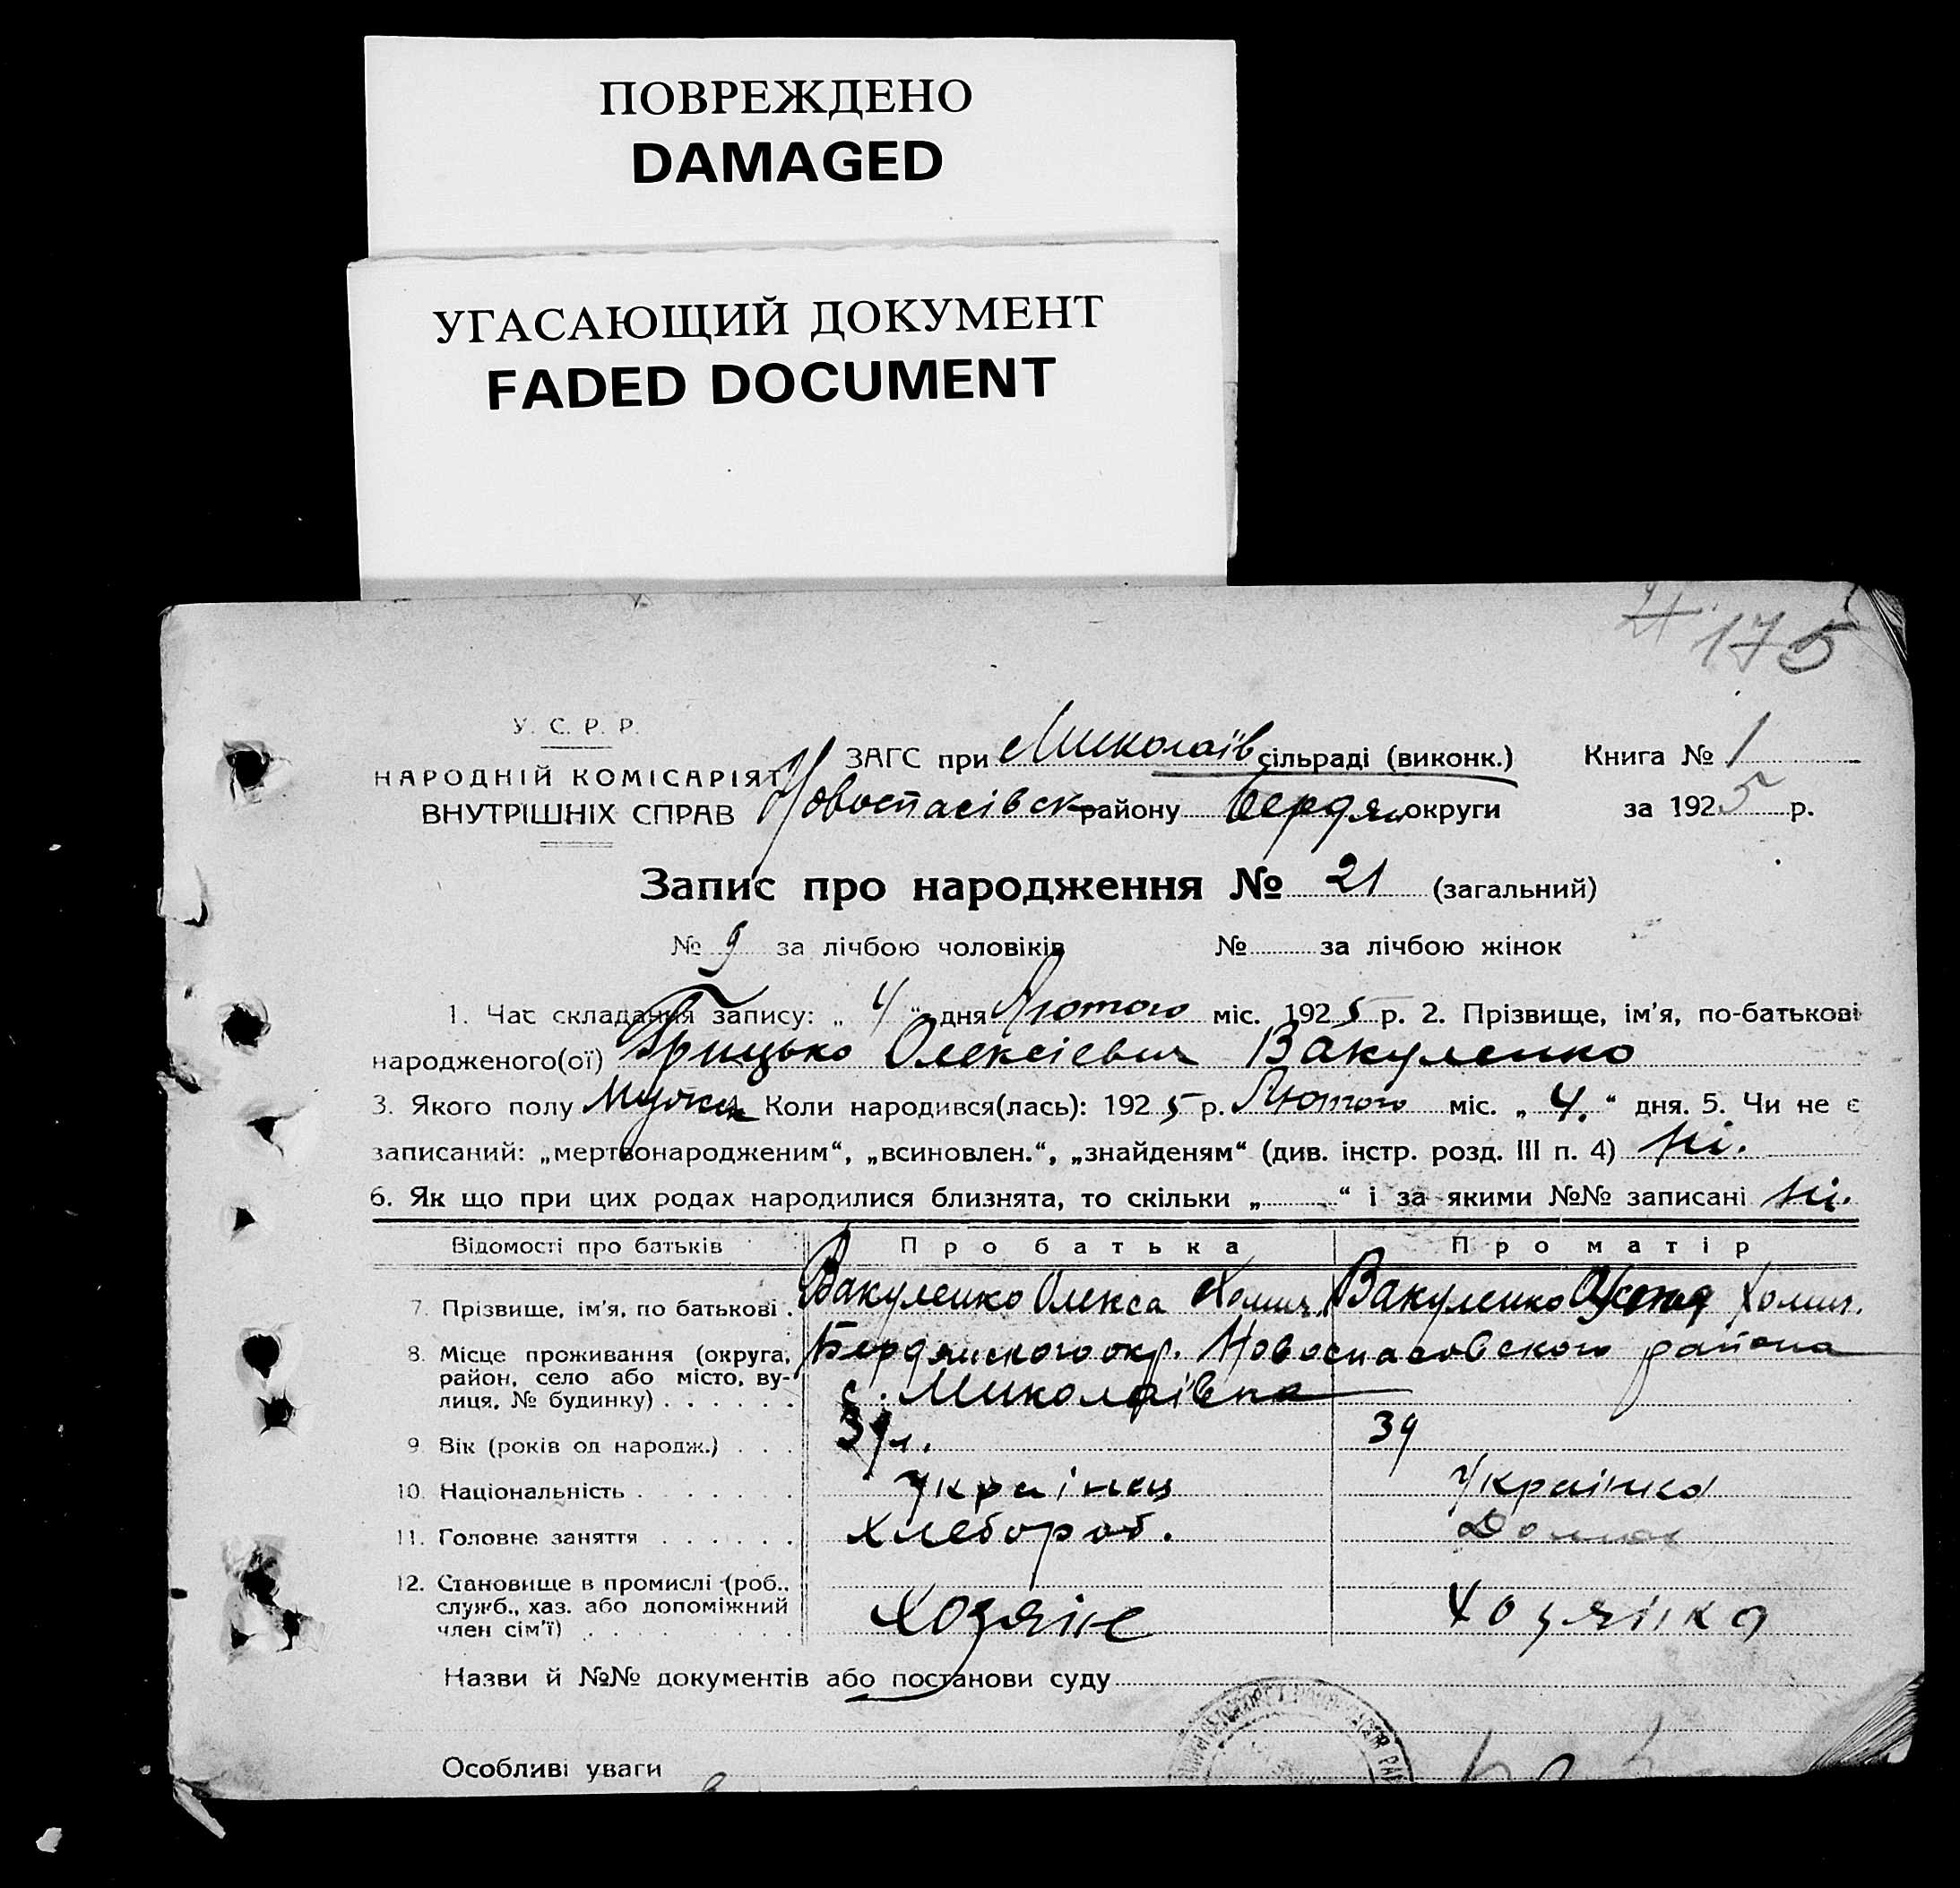 ПОВРЕЖДЕНО
DAMAGED
УГАСАЮЩИЙ ДОКУМЕНТ
FADED DOCUMENT
175
У. С. Р. Р.
НАРОДНІЙ КОМІСАРІЯТ
ВНУТРІШНІХ СПРАВ
ЗАГС при Миколаїв сільраді (виконк.) Книга № 1
Новоспасівск району Бердян округи за 1925 р.
Запис про народження № 21 (загальний)
№ 9 за лічбою чоловіків № за лічбою жінок
1. Час складання запису: „ 4 “ дня Лютого міс. 1925 р. 2. Прізвище, ім'я, по-батькові
народженого(ої) Грицько Олексієвич Вакуленко
3. Якого полу Мужск Коли народився(лась): 1925 р. Лютого міс. „ 4. “ дня. 5. Чи не є
записаний: „мертвонародженим“, „всиновлен.“, „знайденям“ (див. інстр. розд. III п. 4) ні.
6. Як що при цих родах народилися близнята, то скільки „ “ і за якими №№ записані ні.
Відомості про батьків Про батька Про матір
7. Прізвище, ім'я, по батькові . Вакуленко Олекса Хомич. Вакуленко Хомич.
8. Місце проживання (округа, Бердянского окр. Новоспасовского района
район, село або місто, ву- с. Миколаївка
лиця, № будинку) . . . . . .
9. Вік (років од народж.) . . . л. 39
10. Національність . . . . . . . Українец Українка
11. Головне заняття . . . . . . Хлебороб. Домаш
12. Становище в промислі (роб.,
служб., хаз. або допоміжний Хозяін Хозяінка
член сім'ї) . . . . . . . . .
Назви й №№ документів або постанови суду
Особливі уваги